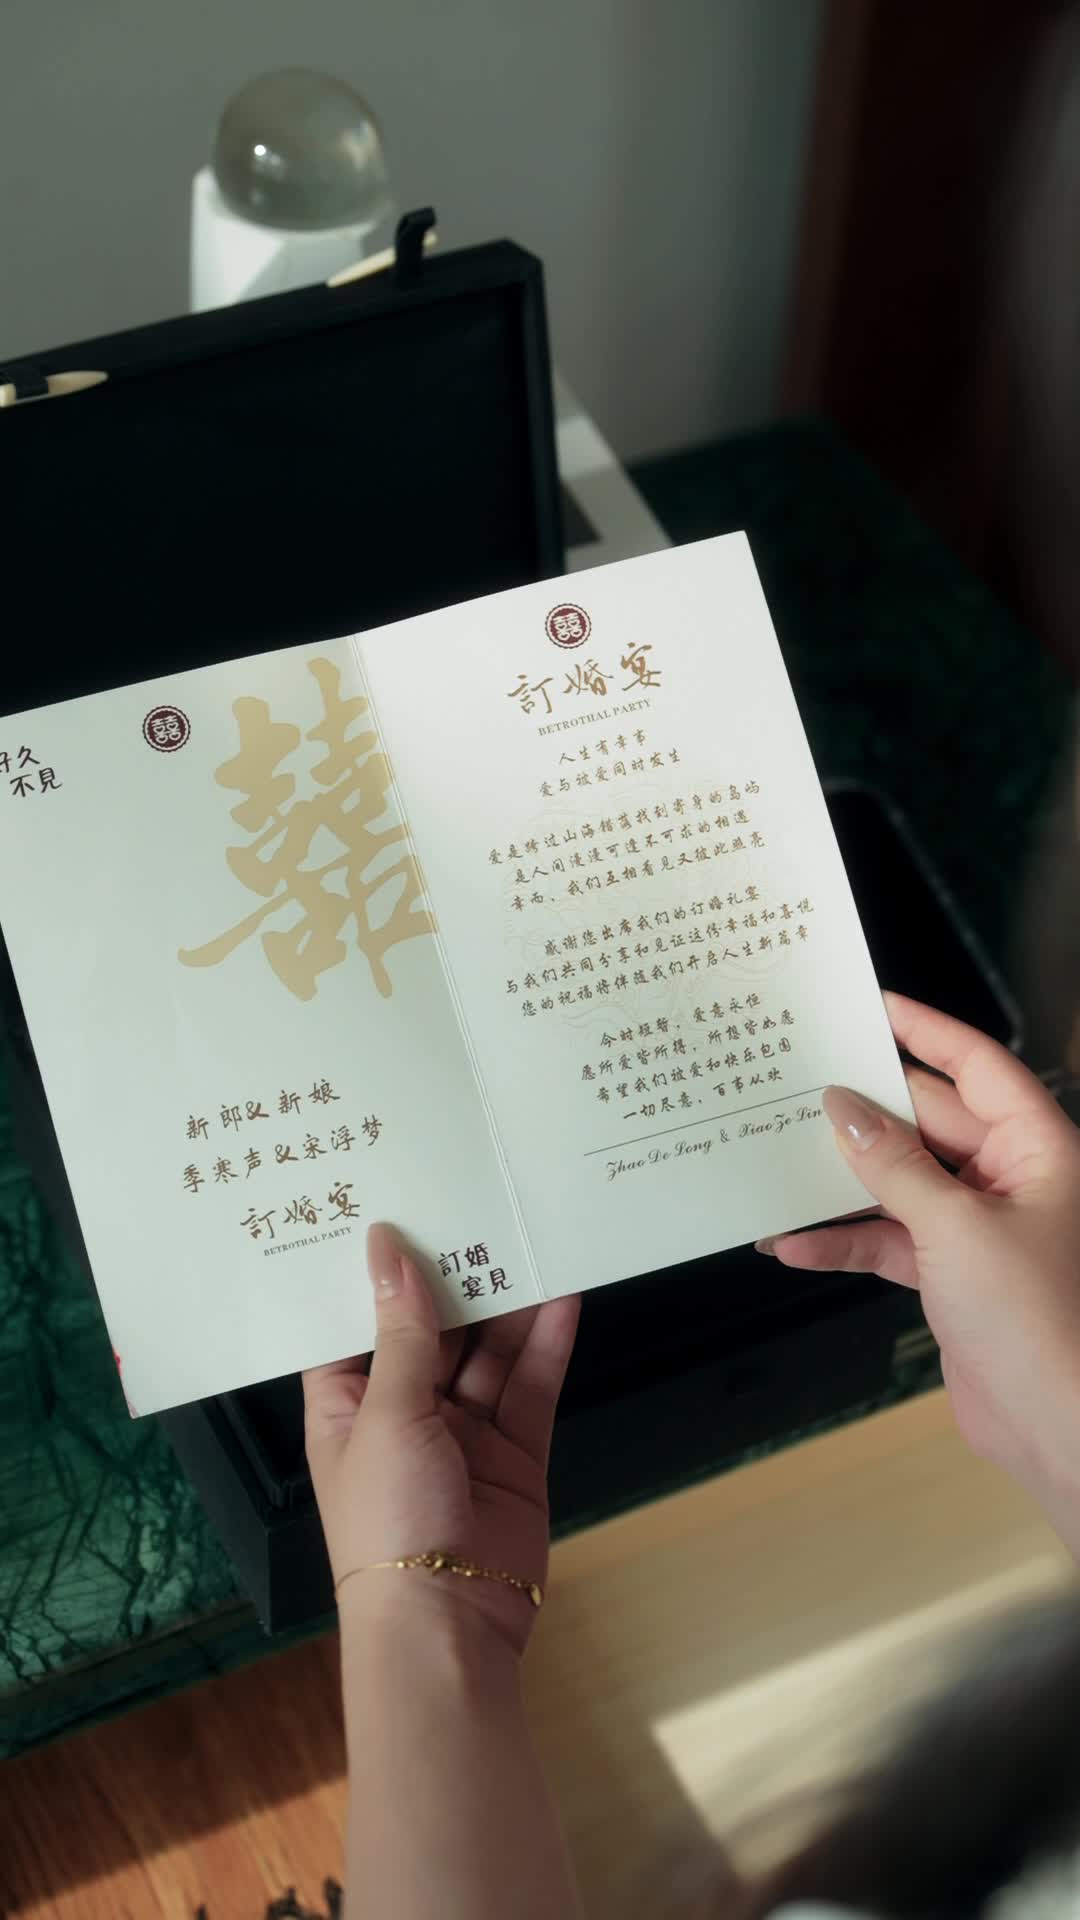 好久
不見
囍
囍
新郎&新娘
季寒声&宋浮梦
訂婚宴
BETROTHAL PARTY
訂婚
宴見
囍
訂婚宴
BETROTHAL PARTY
人生有幸事
爱与被爱同时发生
爱是跨过山海错落找到寄身的岛屿
是人间漫漫可逢不可求的相遇
幸而，我们互相看见又彼此照亮
感谢您出席我们的订婚礼宴
与我们共同分享和见证这份幸福和喜悦
您的祝福将伴随我们开启人生新篇章
今时短暂，爱意永恒
愿所爱皆所得，所想皆如愿
希望我们被爱和快乐包围
一切尽意，百事从欢
Zhao De Long & Xiao Ze Lin